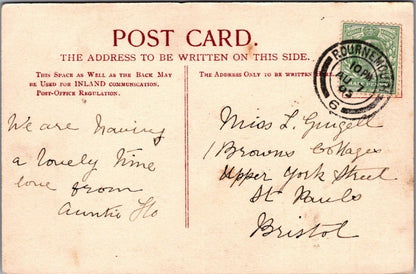 POST CARD.
THE ADDRESS TO BE WRITTEN ON THIS SIDE.
THIS SPACE AS WELL AS THE BACK MAY
BE USED FOR INLAND COMMUNICATION.
POST-OFFICE REGULATION.
THE ADDRESS ONLY TO BE WRITTEN
BOURNEMOUTH
10 PM
6
We are having
a lovely time
love from
Auntie Flo
Miss L
1 Browns Cottages
Upper York Street
St Pauls
Bristol